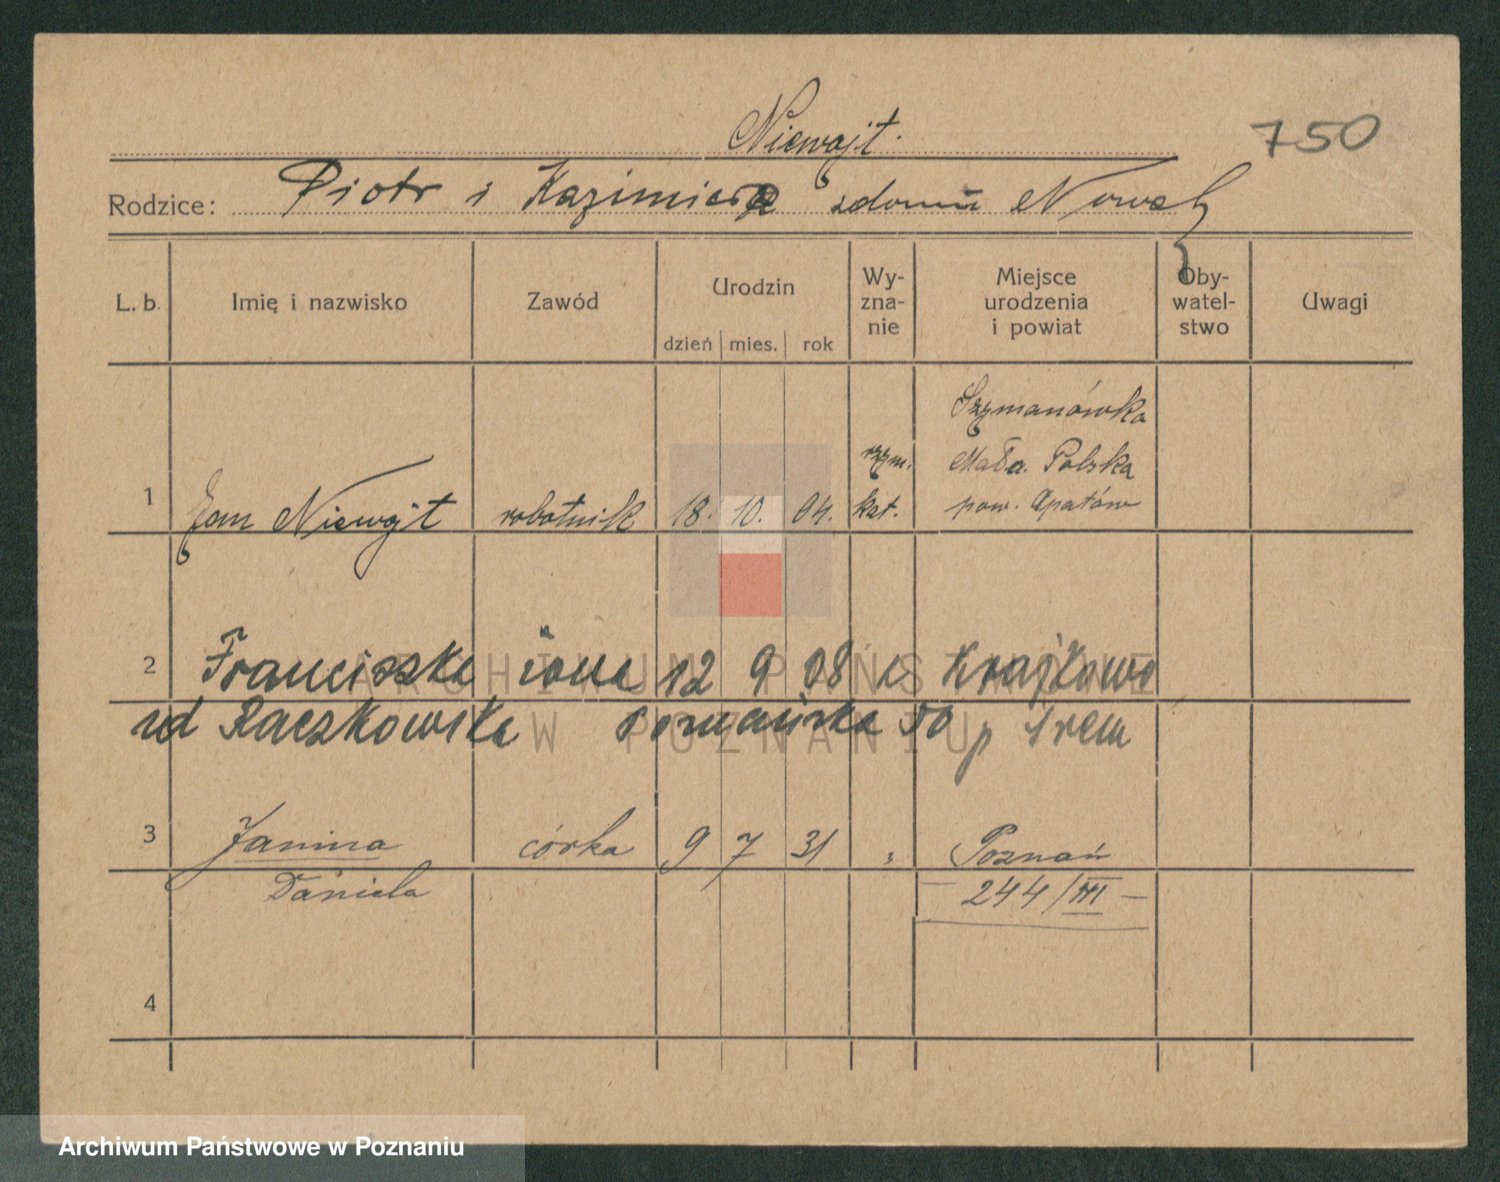 Niewojt.
750
Rodzice: Piotr i Kazimiera zdomu Nowak
L. b. Imię i nazwisko Zawód Urodzin dzień mies. rok Wy-zna-nie Miejsce urodzenia i powiat Oby-watel-stwo Uwagi
Szymanówka
rzym. Mała. Polska
1 Jan Niewojt robotnik 18. 10. 04. kat. pow. Opatów
2 Franciszka żona 12 9 08 k Krajkowo
ud Raczkowska Poznańska 50 p Śrem
3 Janina córka 9 7 31 " Poznań
Daniela — 244/III —
4
ARCHIWUM PAŃSTWOWE
W POZNANIU
Archiwum Państwowe w Poznaniu